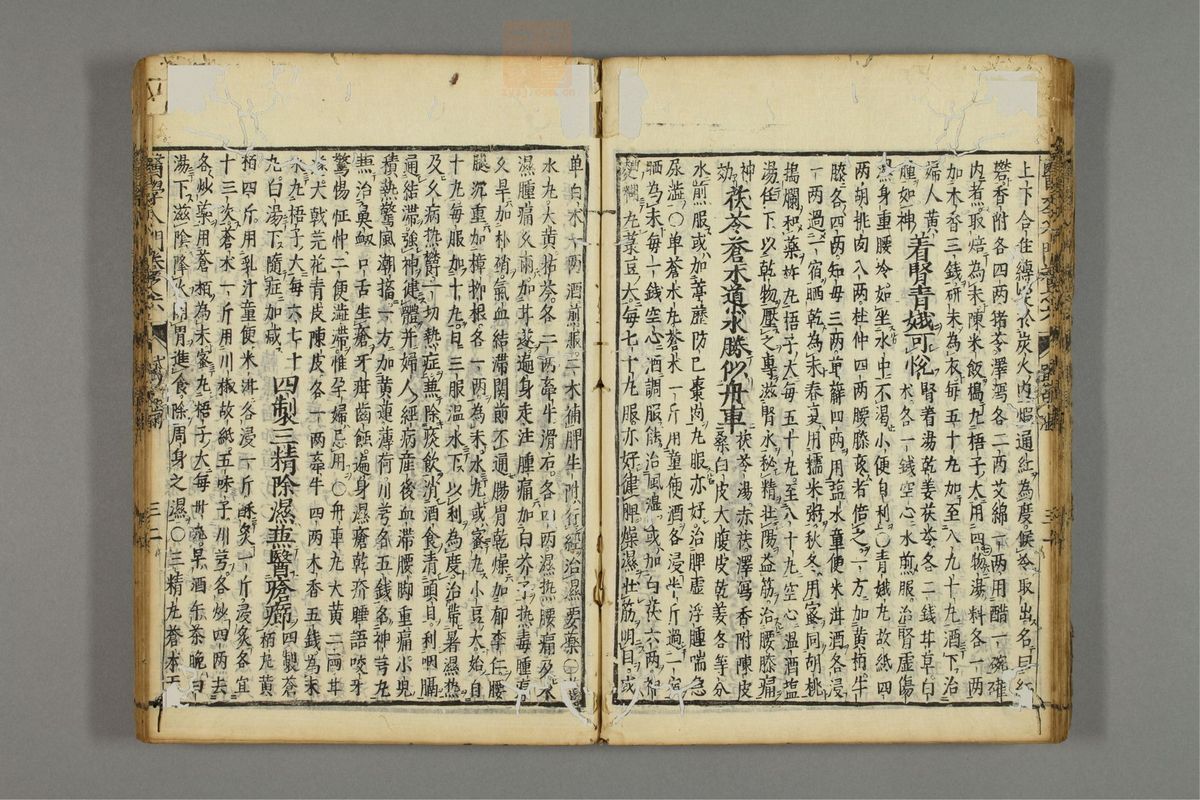 上下合住縛定於炭火內煅通紅為度候冷取出名曰紅
礬香附各四兩猪苓澤瀉各二兩艾綿一兩用醋一碗碓
內煮取焙為末陳米飯搗丸梧子大用四物湯料各一兩
加木香三錢研末為衣每五十丸加至八九十丸酒下治
婦人黃腫如神
着腎青娥可悅
腎着湯乾姜茯苓各二錢甘草白
朮各一錢空心水煎服治腎虛傷
濕身重腰冷如坐水中不渴小便自利○青娥丸故紙四
兩胡桃肉八兩杜仲四兩腰膝痠者倍之一方加黃栢牛
膝各四兩知母三兩萆薢四兩用盐水童便米泔酒各浸
一兩過一宿晒乾為末春夏用糯米粥秋冬用蜜同胡桃
搗爛和藥杵丸梧子大每五十丸至八十丸空心溫酒盐
湯任下以乾物壓之專滋腎水秘精壯陽益筋治腰膝痛
神効
茯苓蒼朮道水勝似舟車
茯苓湯赤茯澤瀉香附陳皮
桑白皮大腹皮乾姜各等分
水煎服或加葶藶防已棗肉丸服亦好治脾虛浮腫喘急
尿澁○单蒼朮丸蒼朮一斤用童便酒各浸半斤過一宿
晒為末每一錢空心酒調服能治風濕或加白茯六兩神
麯糊丸菉豆大每七十丸服亦好健脾燥濕壯筋明目或
单白朮
兩酒煎服二朮補脾生附行經治濕要藥○
水丸大黃枯苓各二兩畜牛滑石各四兩濕热腰痛及
濕腫痛久雨加甘遂遍身走注腫痛加白芥子热毒腫痛
久旱加朴硝氣血結滯関前不通腸胃乾燥加郁李仁腰
腿沉重加樟柳根各一兩為末水丸或蜜丸小豆大始自
十丸每服加十丸日三服溫水下以利為度治帶暑濕热
及久病热欝一切热症無除痰飲消酒食清頭目利咽膈
通結滯強神健體并婦人經病産後血滯腰脚重痛小兒
積熱驚風潮搐一方加黃連薄荷川芎各五錢名神芎丸
無治鼻衂口舌生瘡牙疳齒蝕遍身濕瘡乾疥睡語咬牙
驚惕怔忡二便澁滯惟孕婦忌用○舟車丸大黃二兩甘
遂大戟芫花青皮陳皮各一兩畜牛四兩木香五錢為末
水丸梧子大每六七十
丸白湯下隨症加减
四制三精除濕無醫瘡癤
四製蒼
栢丸黃
栢四斤用乳汁童便米泔各浸一斤酥炙一斤浸炙各宜
十三次蒼朮一斤用川椒故紙五味子川芎各炒四兩去
各炒藥用蒼栢為末蜜丸梧子大每卅丸早酒午茶晚白
湯下滋陰降火開胃進食除周身之濕○三精丸蒼朮天
醫學入門
三二